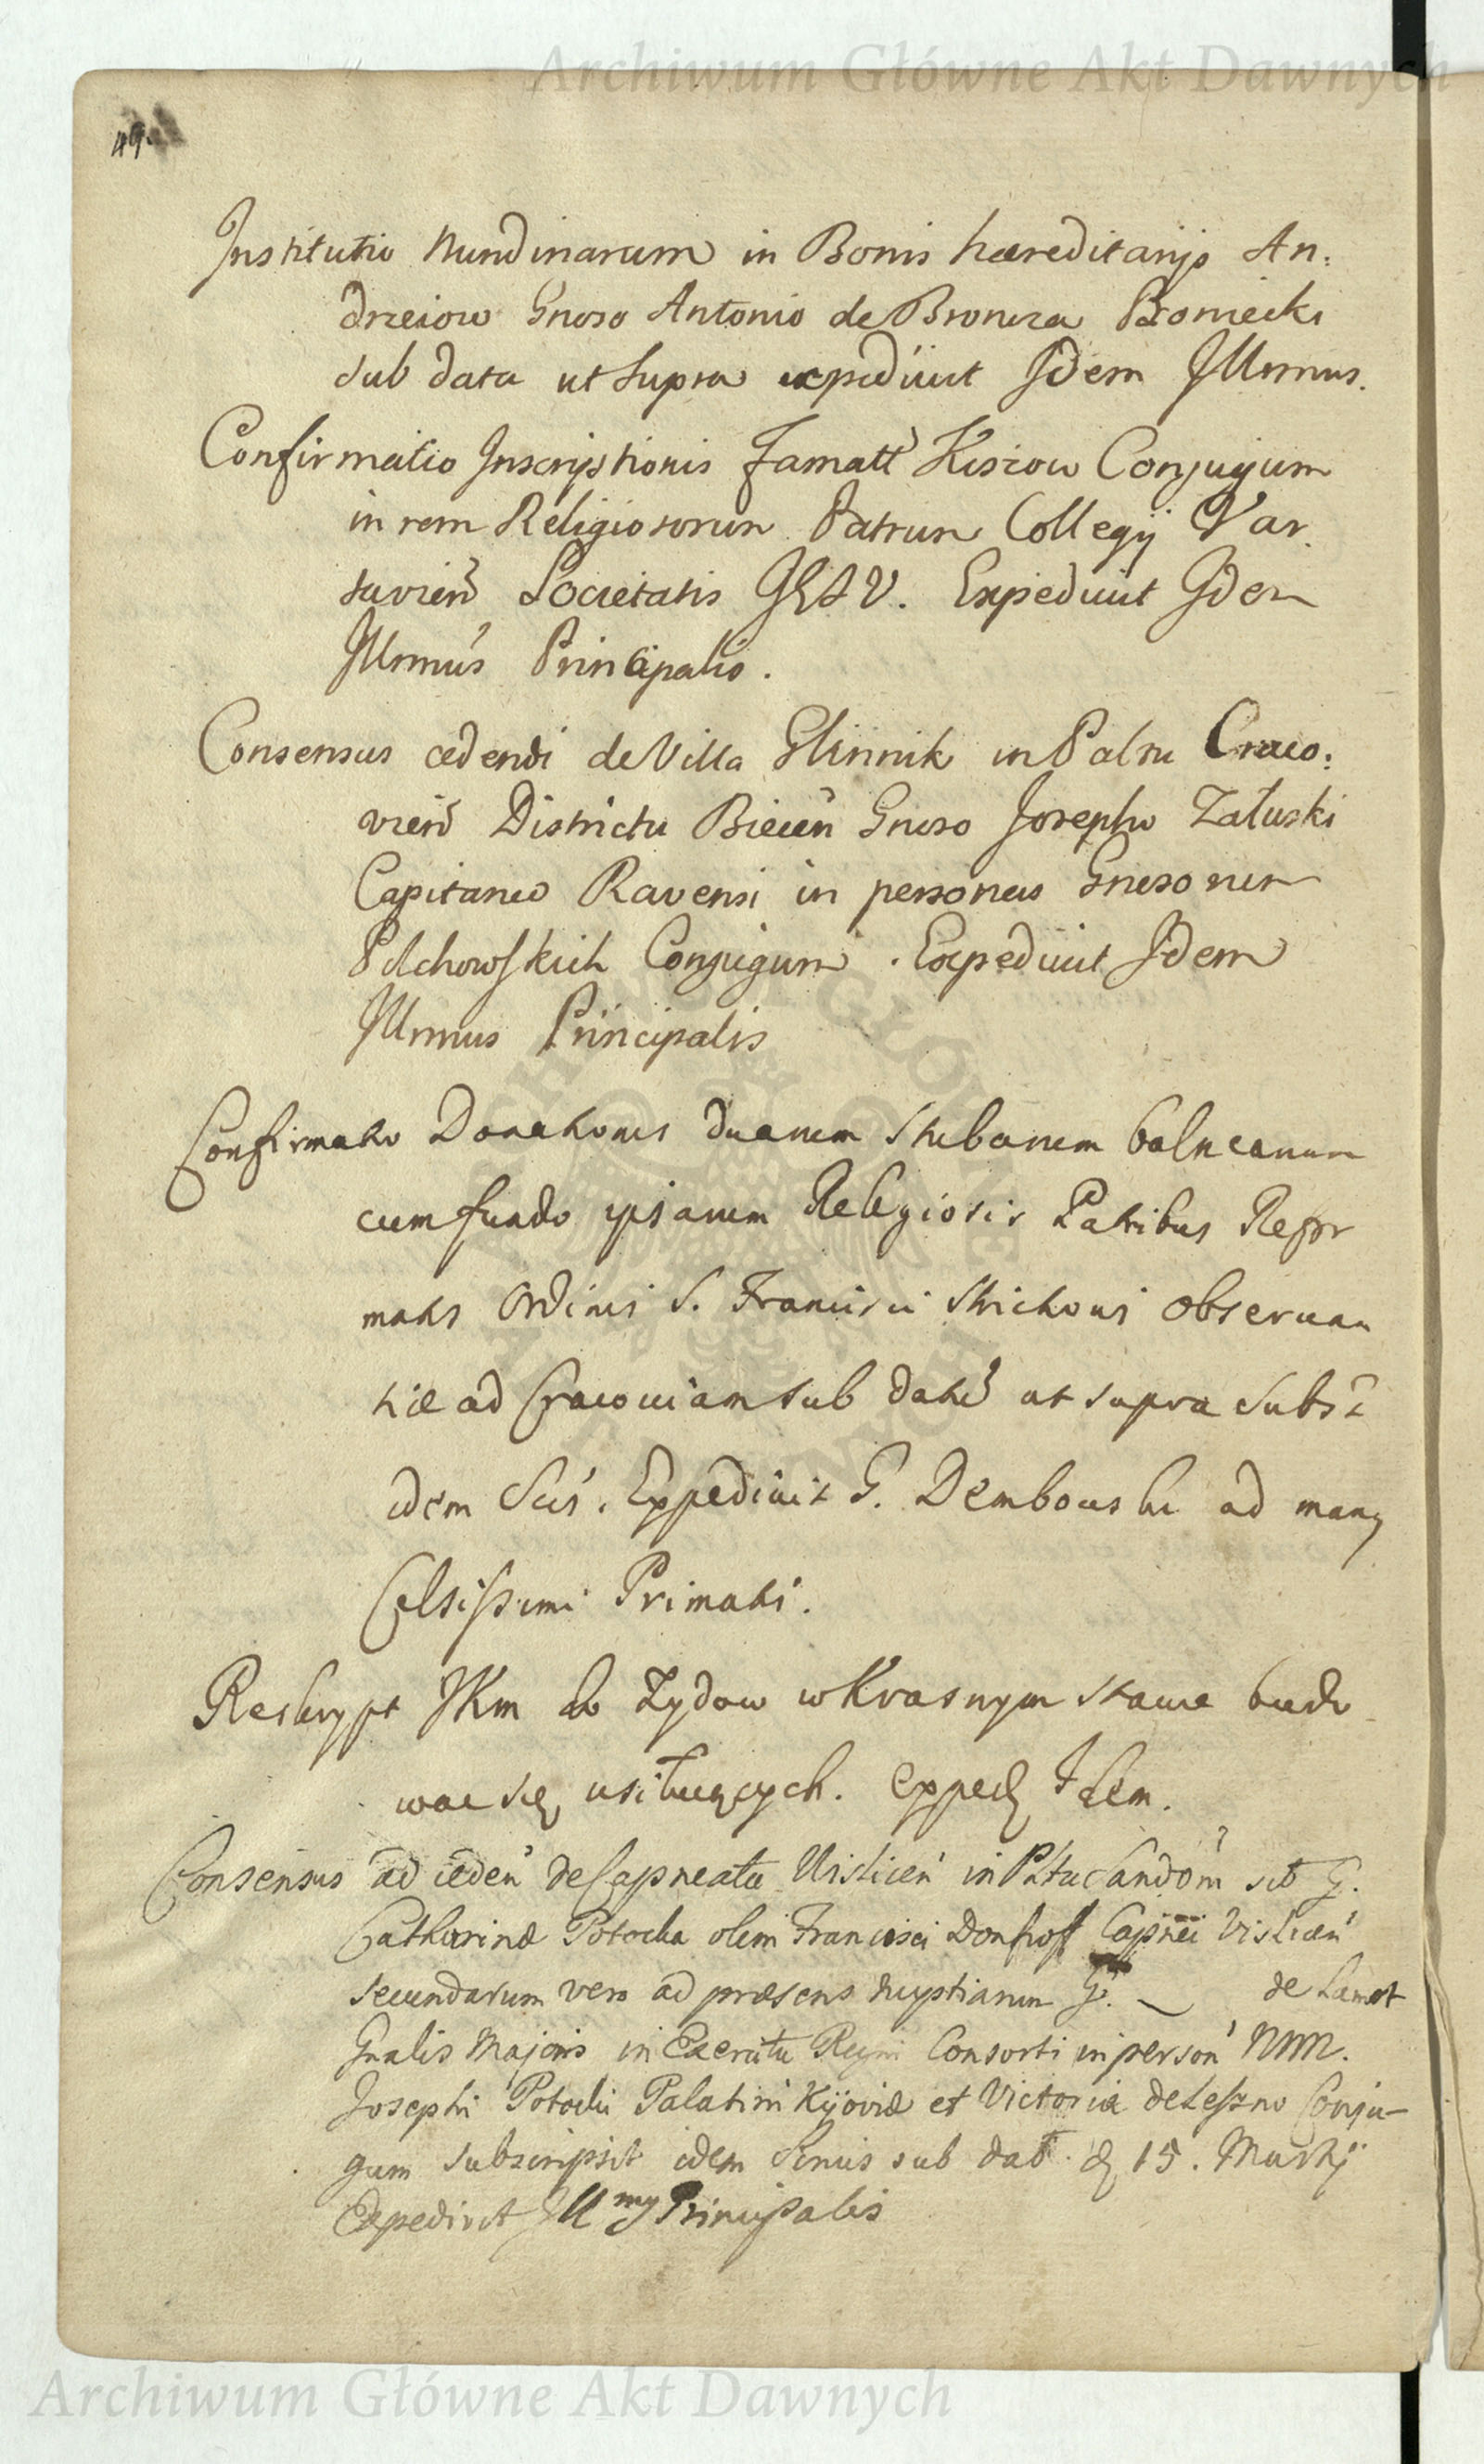 Archiwum Główne Akt Dawnych
49
Institutio Nundinarum in Bonis haereditarijs An:
drzeiow Gnoso Antonio de Bronica Broniecki
sub data ut supra expediuit Idem Illrmus.
Confirmatio Inscriptionis Famatt Kisiow Conjugum
in rem Religiosorum Patrum Collegij Var
savien Societatis IESV. Expediuit Idem
Illrmus Principalis.
Consensus cedendi de Villa Glinnik in Paltu Craco:
vien Districtu Biecen Gnoso Josepho Załuski
Capitaneo Ravensi in personas Gnosorum
Pilchowskich Conjugum. Expediuit Idem
Illrmus Principalis
Confirmatio Donationis duarum stubarum balnearum
cum fundo ipsarum Religiosis Patribus Refor
matis Ordinis S. Francisci Strictioris Observan
tiae ad Cracouiam sub date ut supra Subst
idem Scis. Expediuit G. Dembowski ad many
Celsissimi Primatis.
Reskrypt JKm do Zydow w Krasnym stawie budo
wac się usiłuiących. Exped Idem.
Consensus ad ceden de Capneatu Uislicen in Pltu Sandom sit G.
Catharinae Potocka olim Francisci Donhoff Capnei Vislicen
secundarum vero ad praesens nuptiarum G. de Lamot
Gnalis Majoris in Exercitu Regni Consorti in person MM.
Josephi Potocki Palatini Kijoviae et Victoria de Leszno Conju-
gum subscripsit idem Senius sub dat. d 15. Martij
Expedivit Illmy Principalis
Archiwum Główne Akt Dawnych